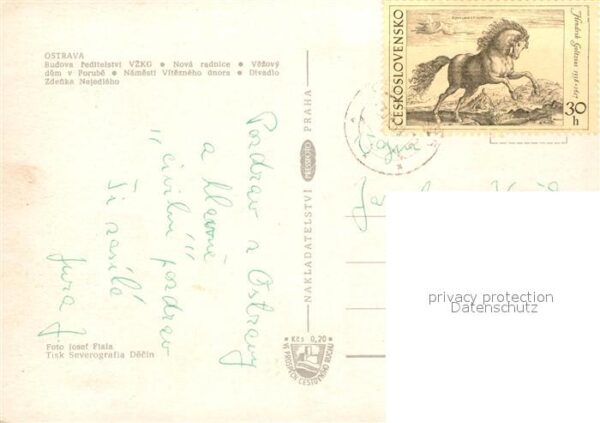 OSTRAVA
Budova ředitelství VŽKG • Nová radnice • Věžový
dům v Porubě • Náměstí Vítězného února • Divadlo
Zdeňka Nejedlého
Pozdrav z Ostravy
a hlavně
"civilní" pozdrav
Ti zasílá
Jura J.
Foto Josef Fiala
Tisk Severografia Děčín
NAKLADATELSTVÍ PRESSFOTO PRAHA
Kčs 0,20
VE PROSPĚCH CESTOVNÍHO RUCHU
ČESKOSLOVENSKO
Hendrik Goltzius 1558-1617
30 h
privacy protection
Datenschutz